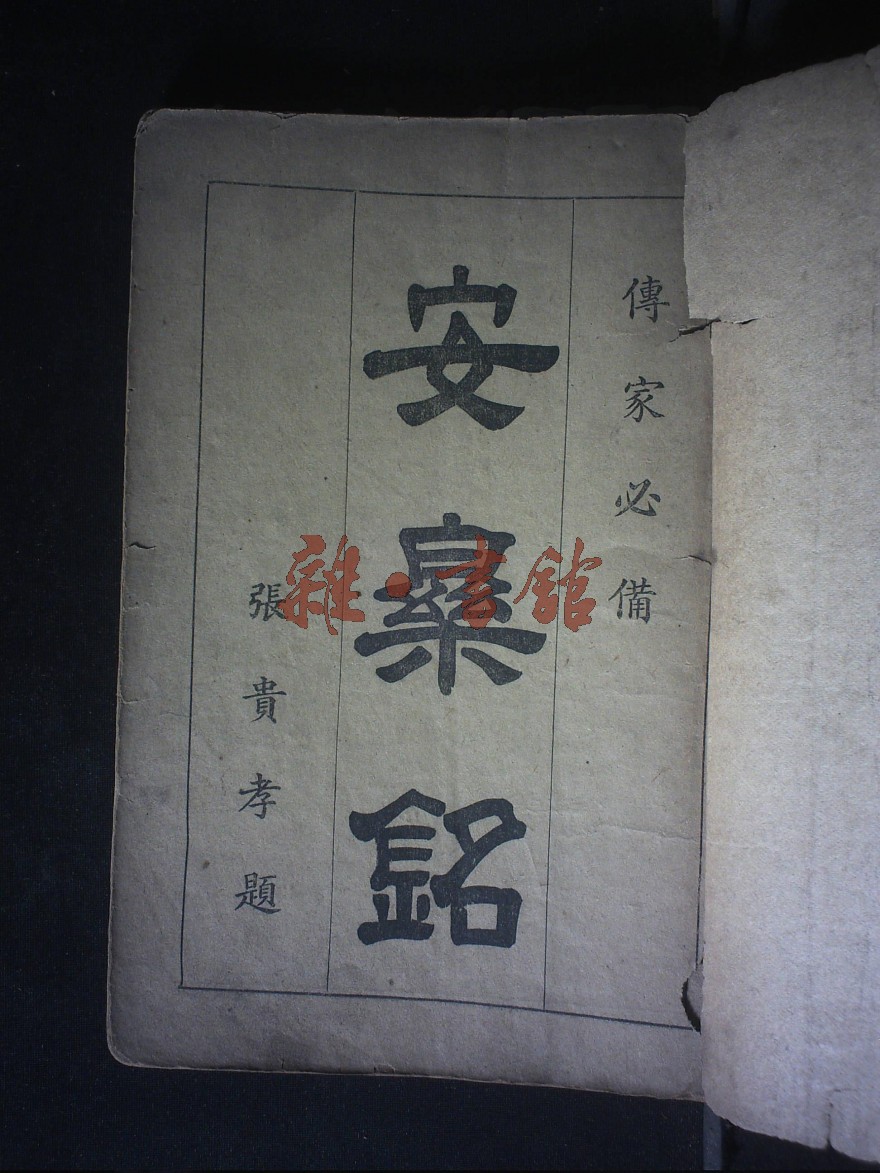 傳家必備
安樂銘
張貴孝題
雜·書館